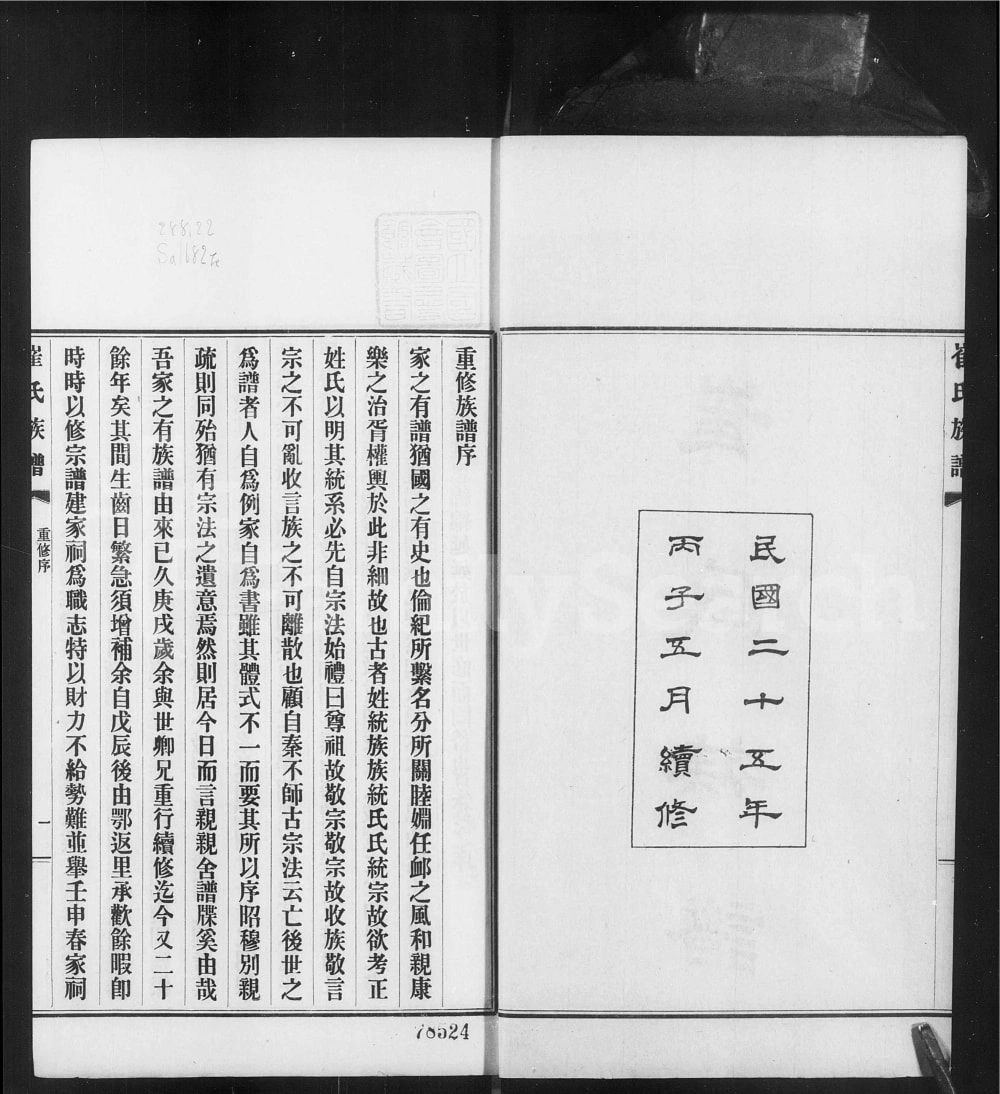 崔氏族譜
民國二十五年
丙子五月續修
重修族譜序
家之有譜猶國之有史也倫紀所繫名分所關睦婣任卹之風和親康
樂之治胥權輿於此非細故也古者姓統族族統氏氏統宗故欲考正
姓氏以明其統系必先自宗法始禮曰尊祖故敬宗敬宗故收族敬言
宗之不可亂收言族之不可離散也顧自秦不師古宗法云亡後世之
爲譜者人自爲例家自爲書雖其體式不一而要其所以序昭穆別親
疏則同殆猶有宗法之遺意焉然則居今日而言親親舍譜牒奚由哉
吾家之有族譜由來已久庚戌歲余與世卿兄重行續修迄今又二十
餘年矣其間生齒日繁急須增補余自戊辰後由鄂返里承歡餘暇卽
時時以修宗譜建家祠爲職志特以財力不給勢難並舉壬申春家祠
崔氏族譜
重修序
一
288.22
Sa1682
78524